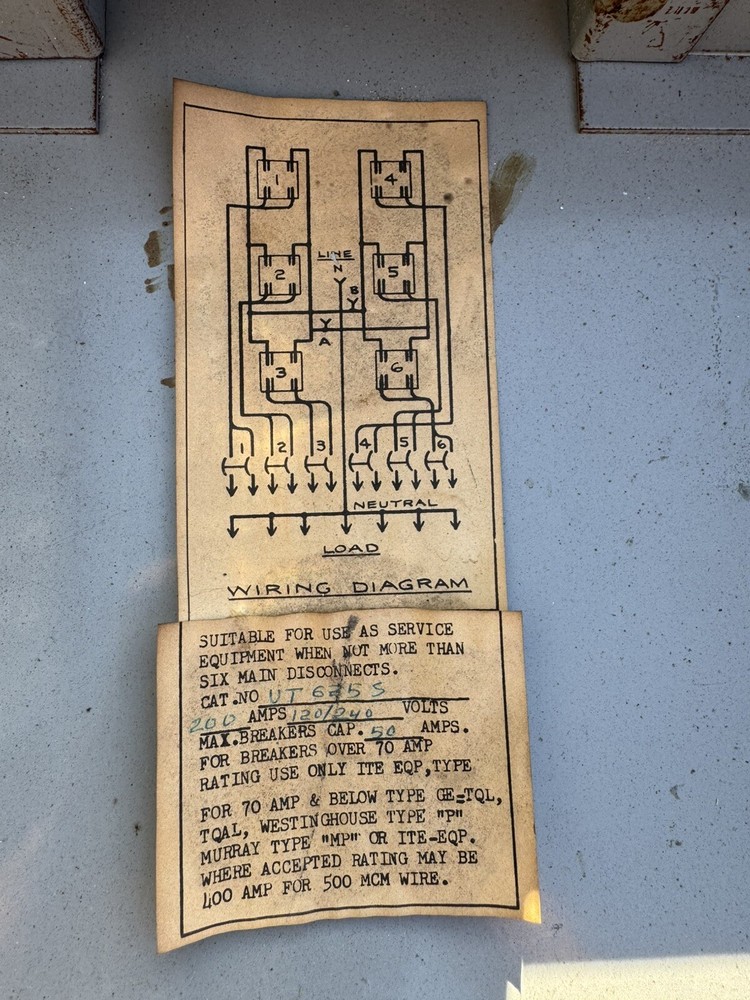 1
4
2
LINE
N
5
B
A
3
6
1 2 3 4 5 6
NEUTRAL
LOAD
WIRING DIAGRAM
SUITABLE FOR USE AS SERVICE
EQUIPMENT WHEN NOT MORE THAN
SIX MAIN DISCONNECTS.
CAT.NO UT 6
200 AMPS 120/240 VOLTS
MAX.BREAKERS CAP. 50 AMPS.
FOR BREAKERS OVER 70 AMP
RATING USE ONLY ITE EQP,TYPE
FOR 70 AMP & BELOW TYPE GE=TQL,
TQAL, WESTINGHOUSE TYPE "P"
MURRAY TYPE "MP" OR ITE-EQP.
WHERE ACCEPTED RATING MAY BE
400 AMP FOR 500 MCM WIRE.